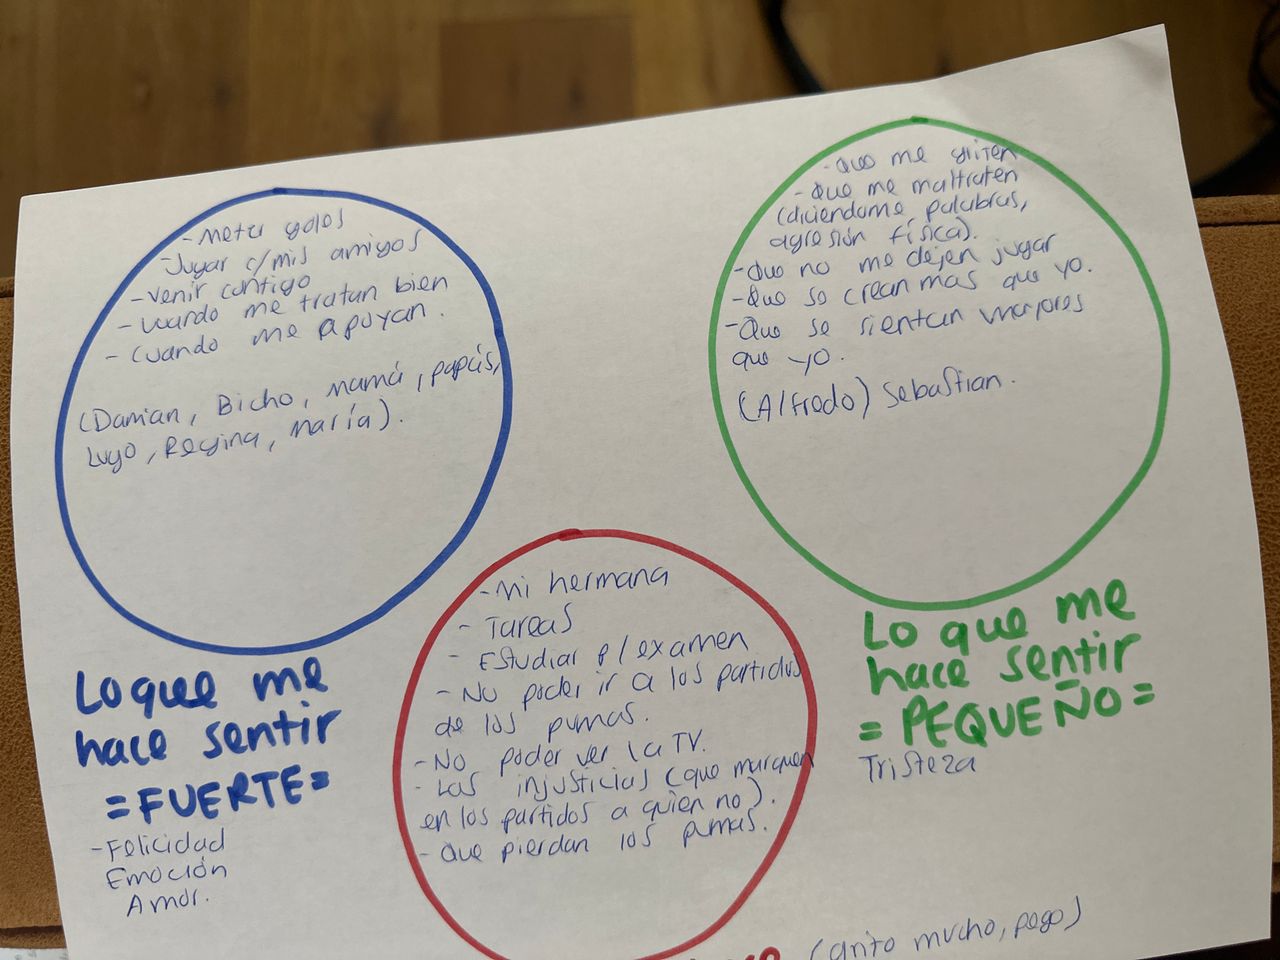 - Meter goles
- Jugar c/mis amigos
- Venir contigo
- Cuando me tratan bien
- Cuando me apoyan.
(Damian, Bicho, mamá, papás,
Lugo, Regina, maría).
Lo que me
hace sentir
=FUERTE=
- Felicidad
Emoción
Amor.
- Que me griten
- Que me maltraten
(diciéndome, palabras,
agresión física).
- Que no me dejen jugar
- Que se crean mas que yo.
- Que se sientan mayores
que yo.
(Alfredo) Sebastian.
Lo que me
hace sentir
=PEQUEÑO=
Tristeza
- Mi hermana
- Tareas
- Estudiar p/examen
- No poder ir a los partidos
de los pumas.
- No poder ver la TV.
- Las injusticias (que marquen
en los partidos a quien no).
- Que pierdan los pumas.
(grito mucho, pego)